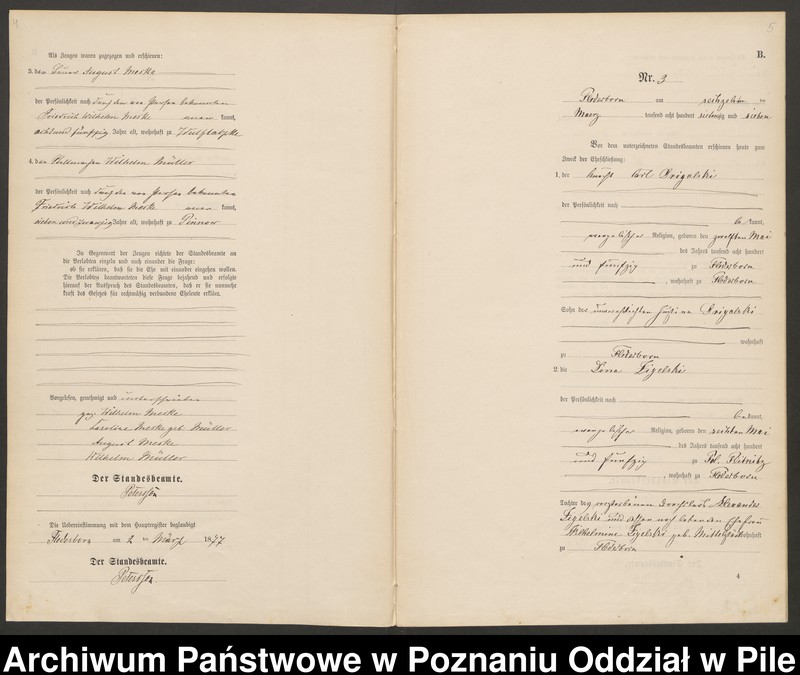 4
Als Zeugen waren zugezogen und erschienen:
3. der Bauer August Meske
der Persönlichkeit nach durch den von Person bekannten
Friedrich Wilhelm Meske anerkannt,
acht und fünfzig Jahre alt, wohnhaft zu
4. der Wilhelm Müller
der Persönlichkeit nach durch den von Person bekannten
Friedrich Wilhelm Meske anerkannt,
sieben und zwanzig Jahre alt, wohnhaft zu Pinnow
In Gegenwart der Zeugen richtete der Standesbeamte an
die Verlobten einzeln und nach einander die Frage:
ob sie erklären, daß sie die Ehe mit einander eingehen wollen.
Die Verlobten beantworteten diese Frage bejahend und erfolgte
hierauf der Ausspruch des Standesbeamten, daß er sie nunmehr
kraft des Gesetzes für rechtmäßig verbundene Eheleute erkläre.
Vorgelesen, genehmigt und unterschrieben
gez. Wilhelm Meske
Caroline Meske geb. Müller
August Meske
Wilhelm Müller
Der Standesbeamte.
Peterssón
Die Uebereinstimmung mit dem Hauptregister beglaubigt
Flederborn am 2 ten März 1877
Der Standesbeamte.
Peterssón.
5
B.
Nr. 3
Flederborn am sechzehnten ten
Maerz tausend acht hundert siebenzig und sieben
Vor dem unterzeichneten Standesbeamten erschienen heute zum
Zweck der Eheschließung:
1. der Knecht Carl Drigalski
der Persönlichkeit nach
bekannt,
evangelischer Religion, geboren den zwölften Mai
des Jahres tausend acht hundert
und fünfzig zu Flederborn
, wohnhaft zu Flederborn
Sohn der unverehelichten Drigalski
wohnhaft
zu Flederborn
2. die Zigelski
der Persönlichkeit nach
bekannt,
evangelischer Religion, geboren den sechsten Mai
des Jahres tausend acht hundert
und fünfzig zu
, wohnhaft zu Flederborn
Tochter des verstorbenen Alexander
Zigelski und dessen noch lebenden Ehefrau
Wilhelmine Zigelski geb. wohnhaft
zu Flederborn
4
Archiwum Państwowe w Poznaniu Oddział w Pile